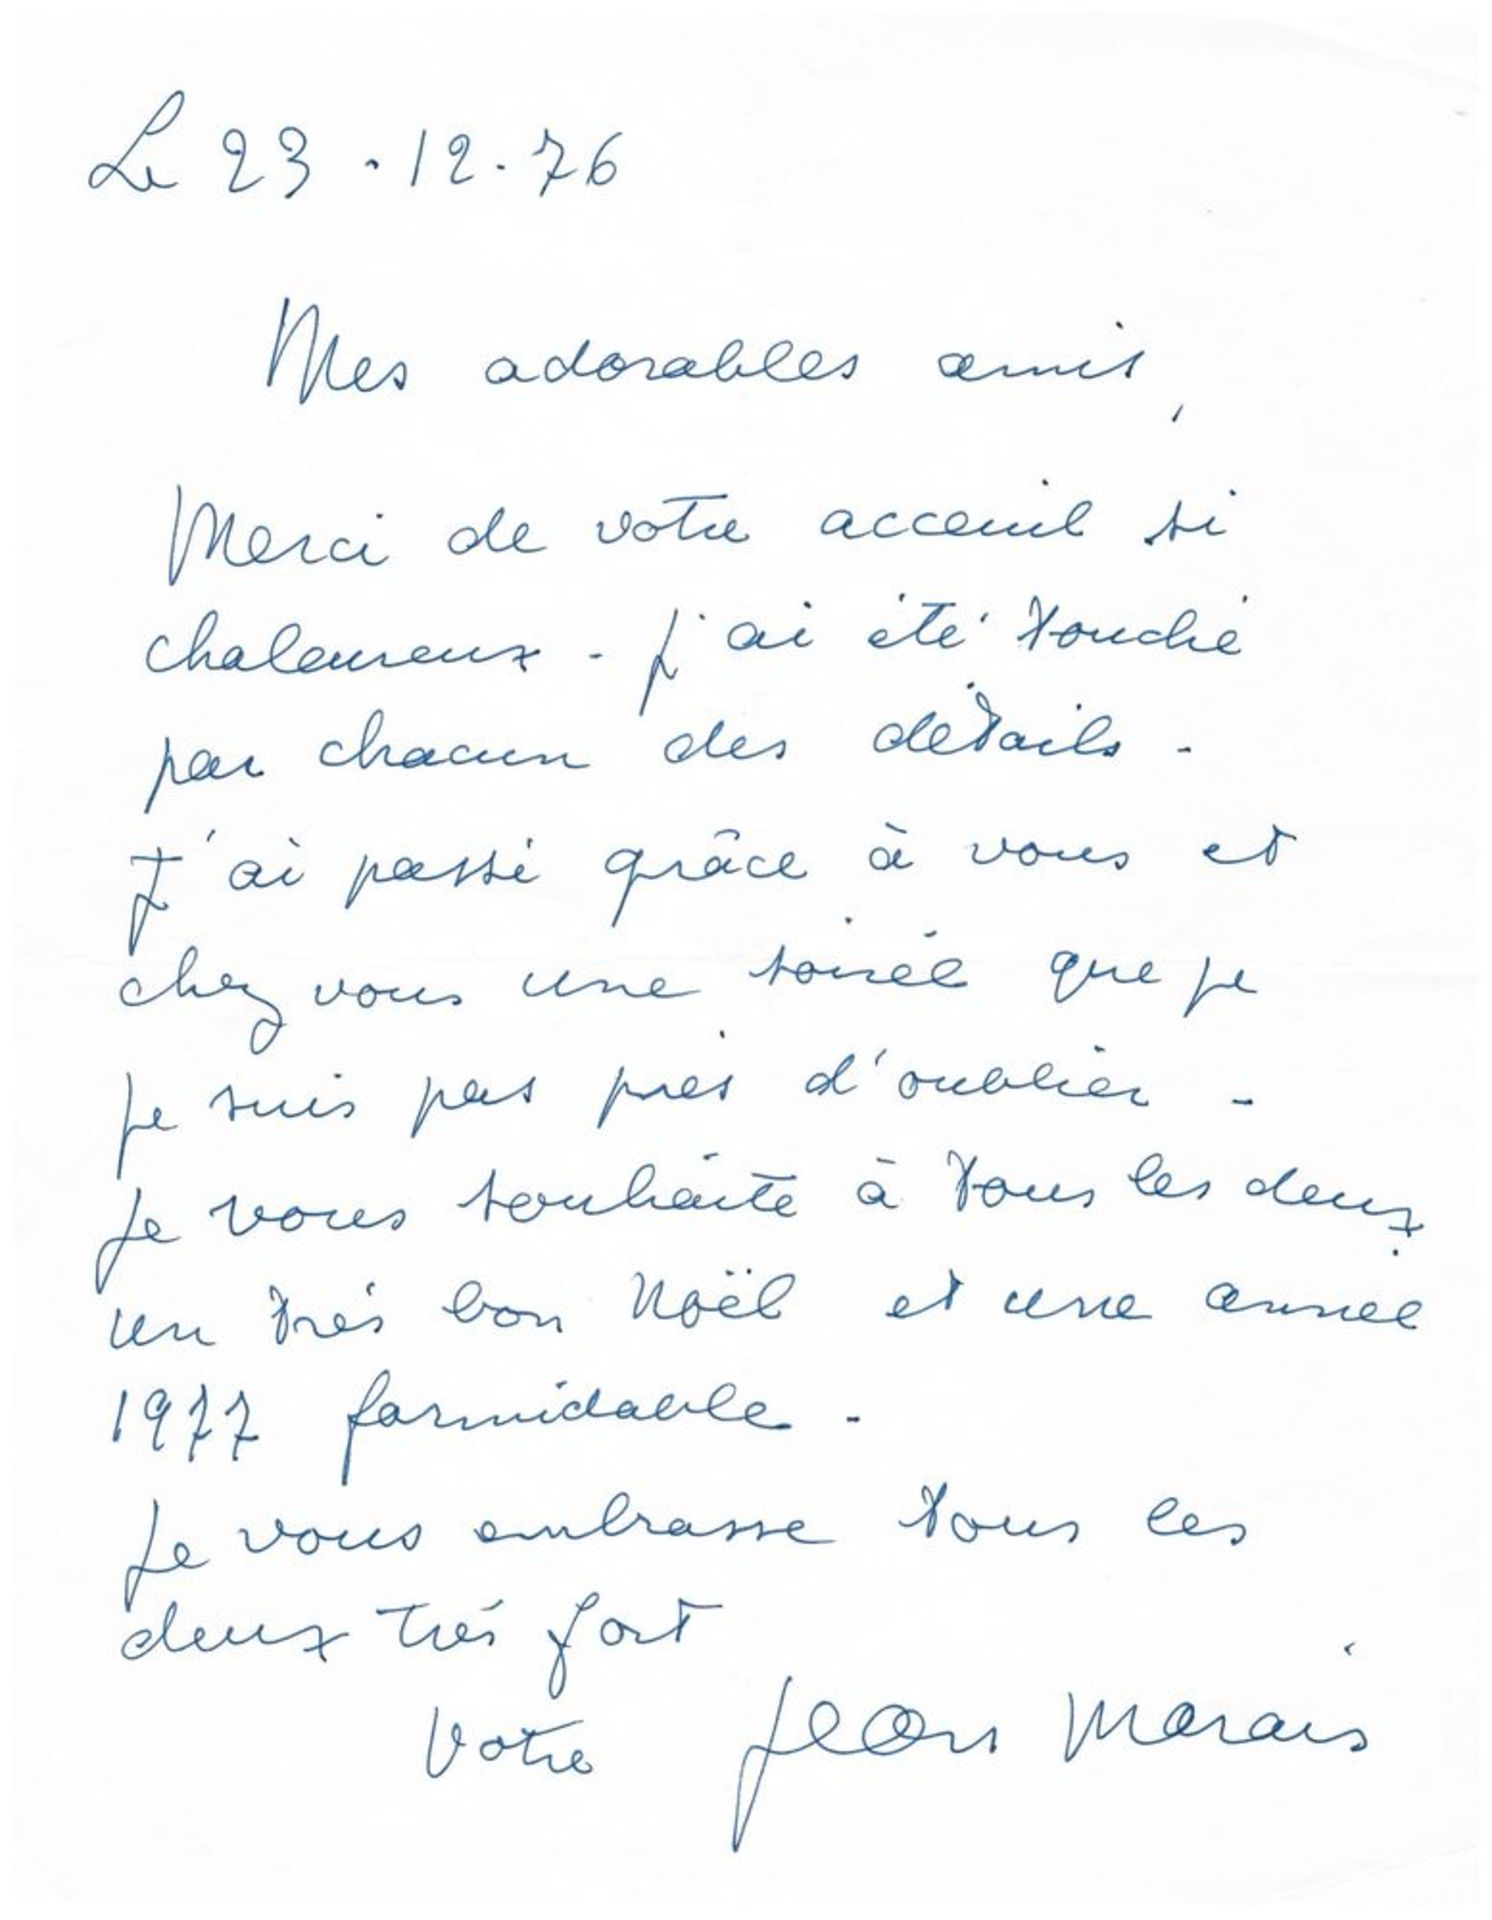 Le 23.12.76
Mes adorables amis,
Merci de votre acceuil si
chaleureux - j'ai été touché
par chacun des détails -
J'ai passé grâce à vous et
chez vous une soirée que je
je suis pas près d'oublier -
Je vous souhaite à tous les deux
un très bon Noël et une année
1977 formidable -
Je vous embrasse tous les
deux très fort
Votre Jean Marais